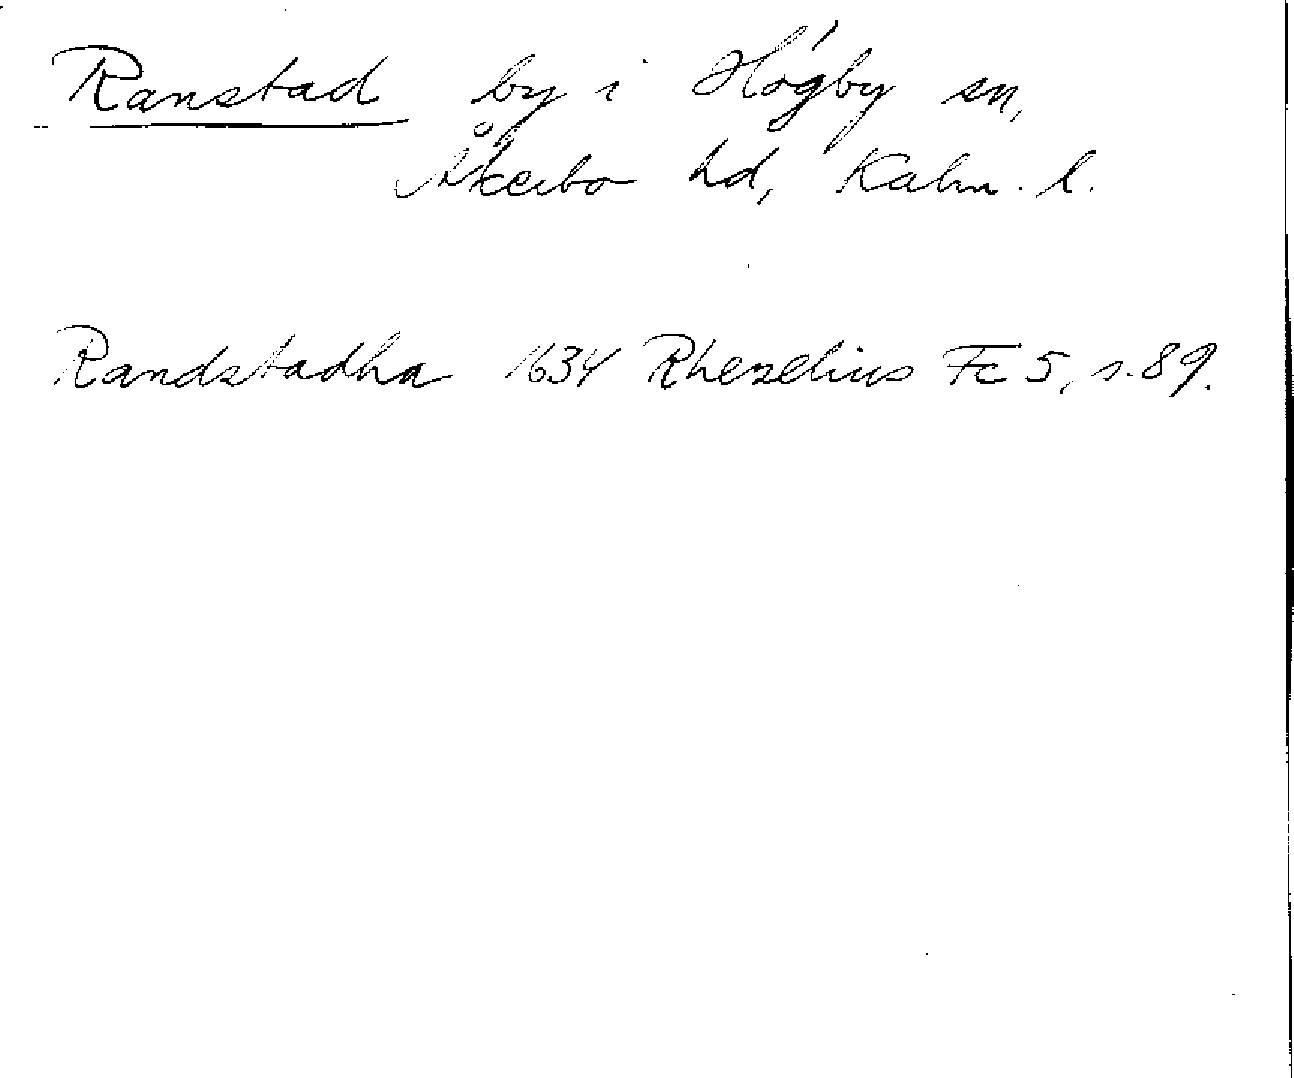 Ranstad by i Högby sn,
Åkerbo hd, Kalm. l.
Randstadha 1634 Rhezelius Fc 5, s. 89.